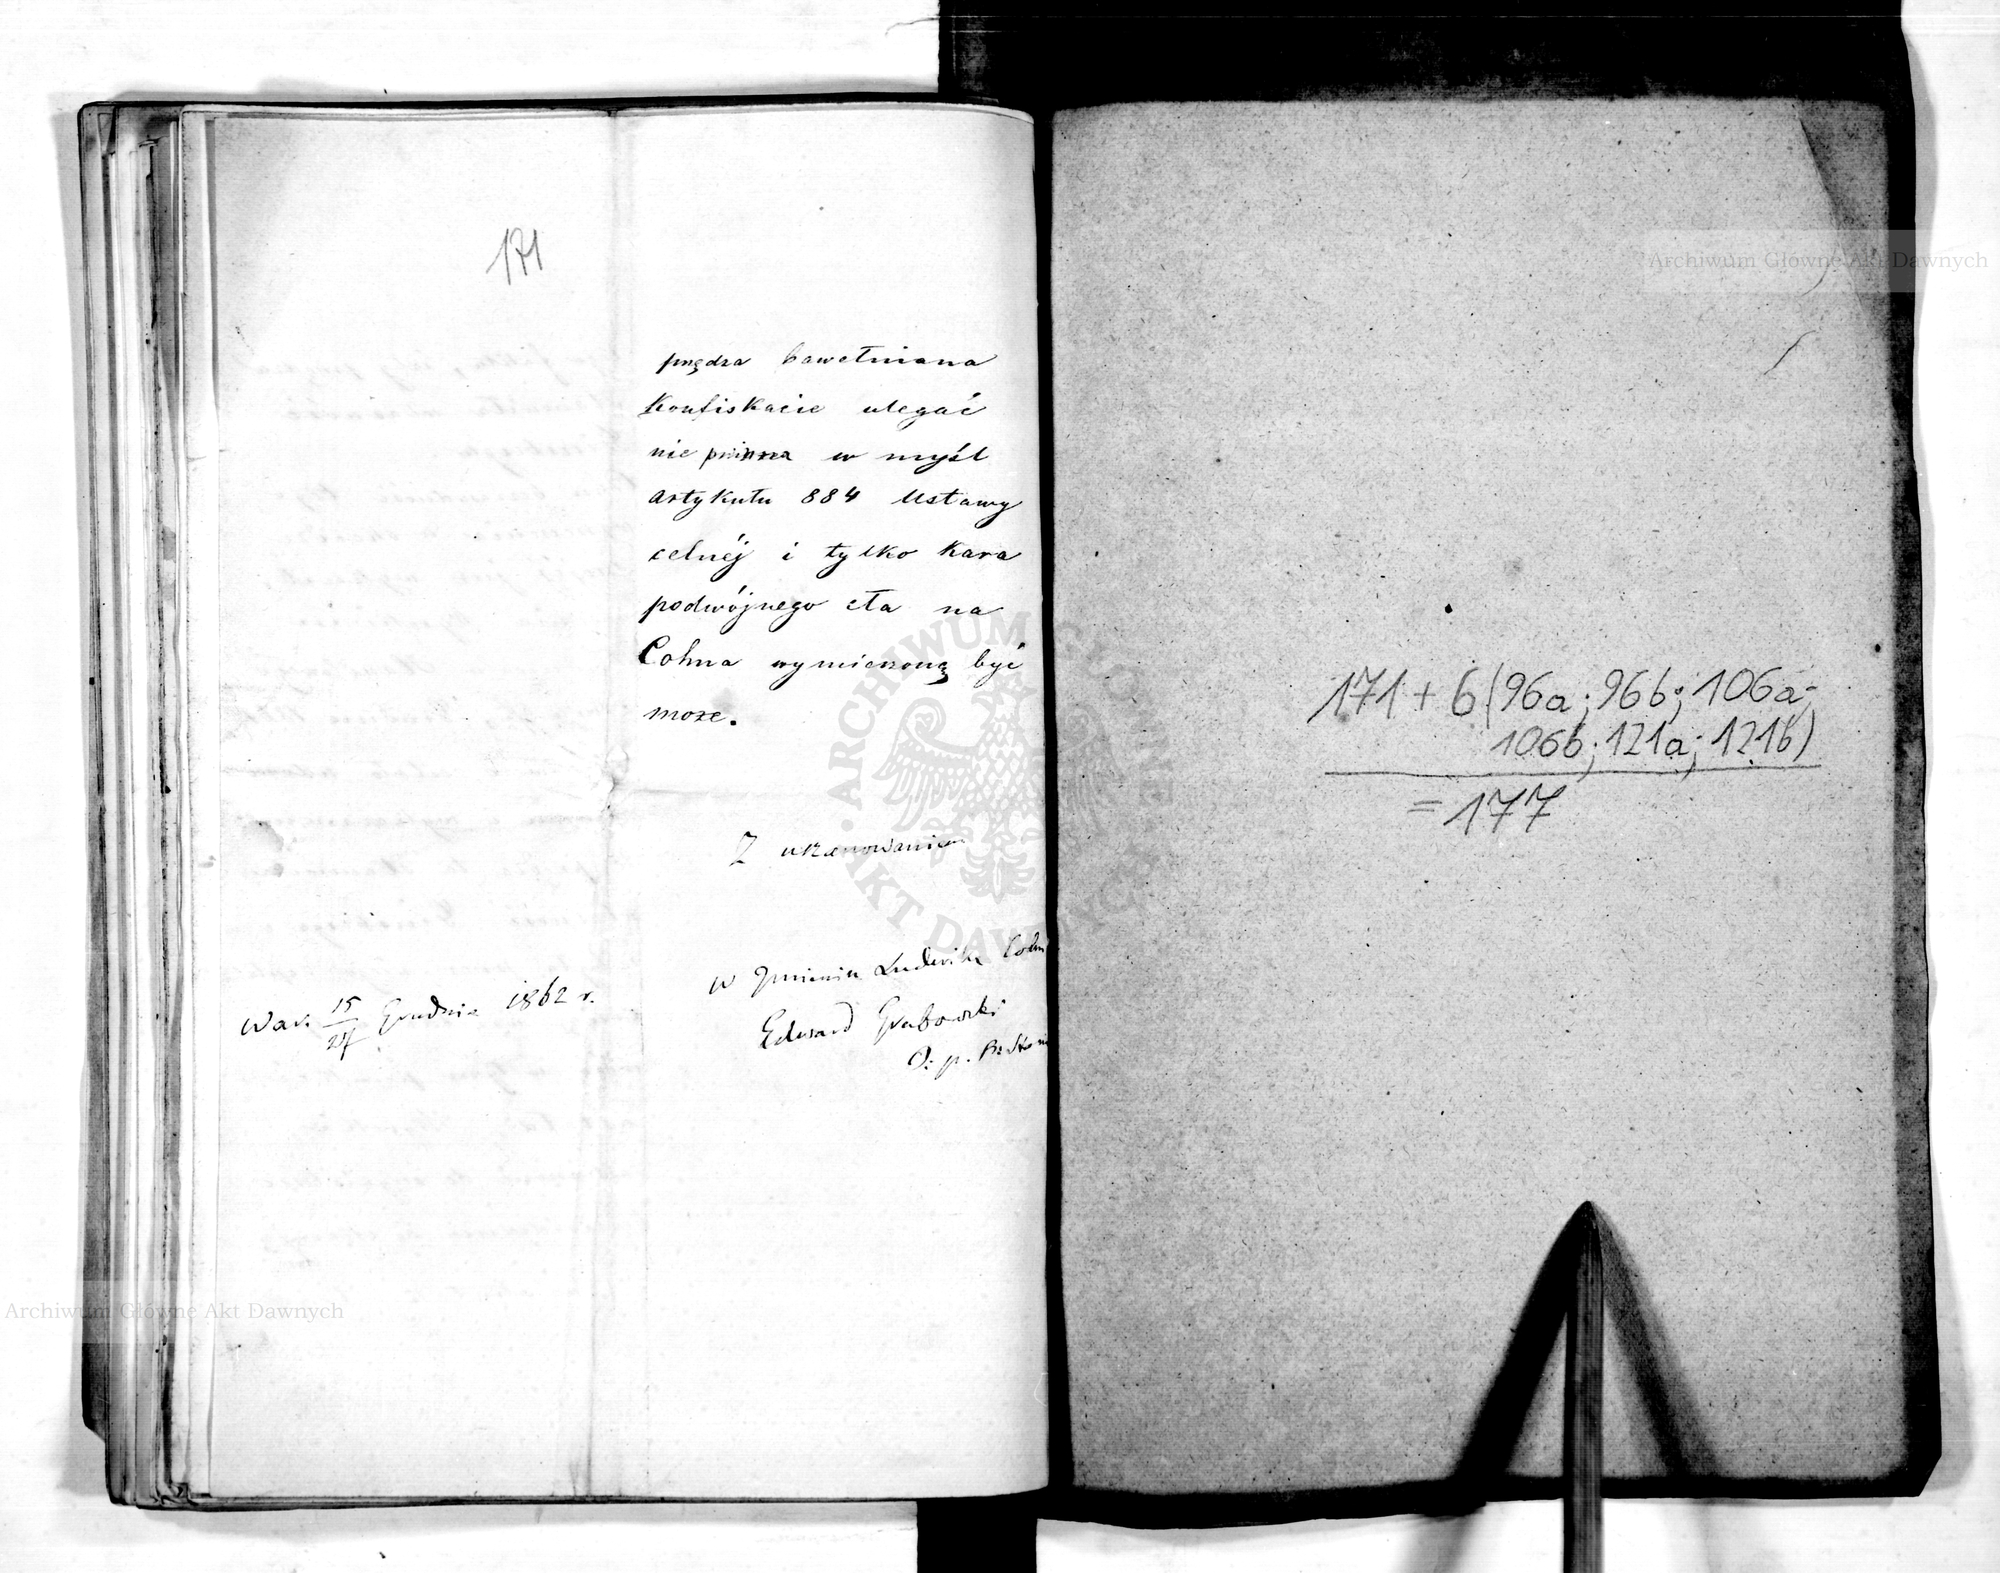 171
przędza bawełniana
Konfiskacie ulegać
nie w myśl
artykułu 884 Ustawy
celnéj i tylko Kara
podwójnego cła na
Cohna wymierzoną być
może.
Z uszanowaniem
War. 15/27 Grudnia 1862 r.
w Jmieniu Ludwika
Edward Grabowski
O. p.
171 + 6 (96a; 96b; 106a;
106b; 121a; 121b)
= 177
Archiwum Główne Akt Dawnych
Archiwum Główne Akt Dawnych
ARCHIWUM GŁÓWNE AKT DAWNYCH